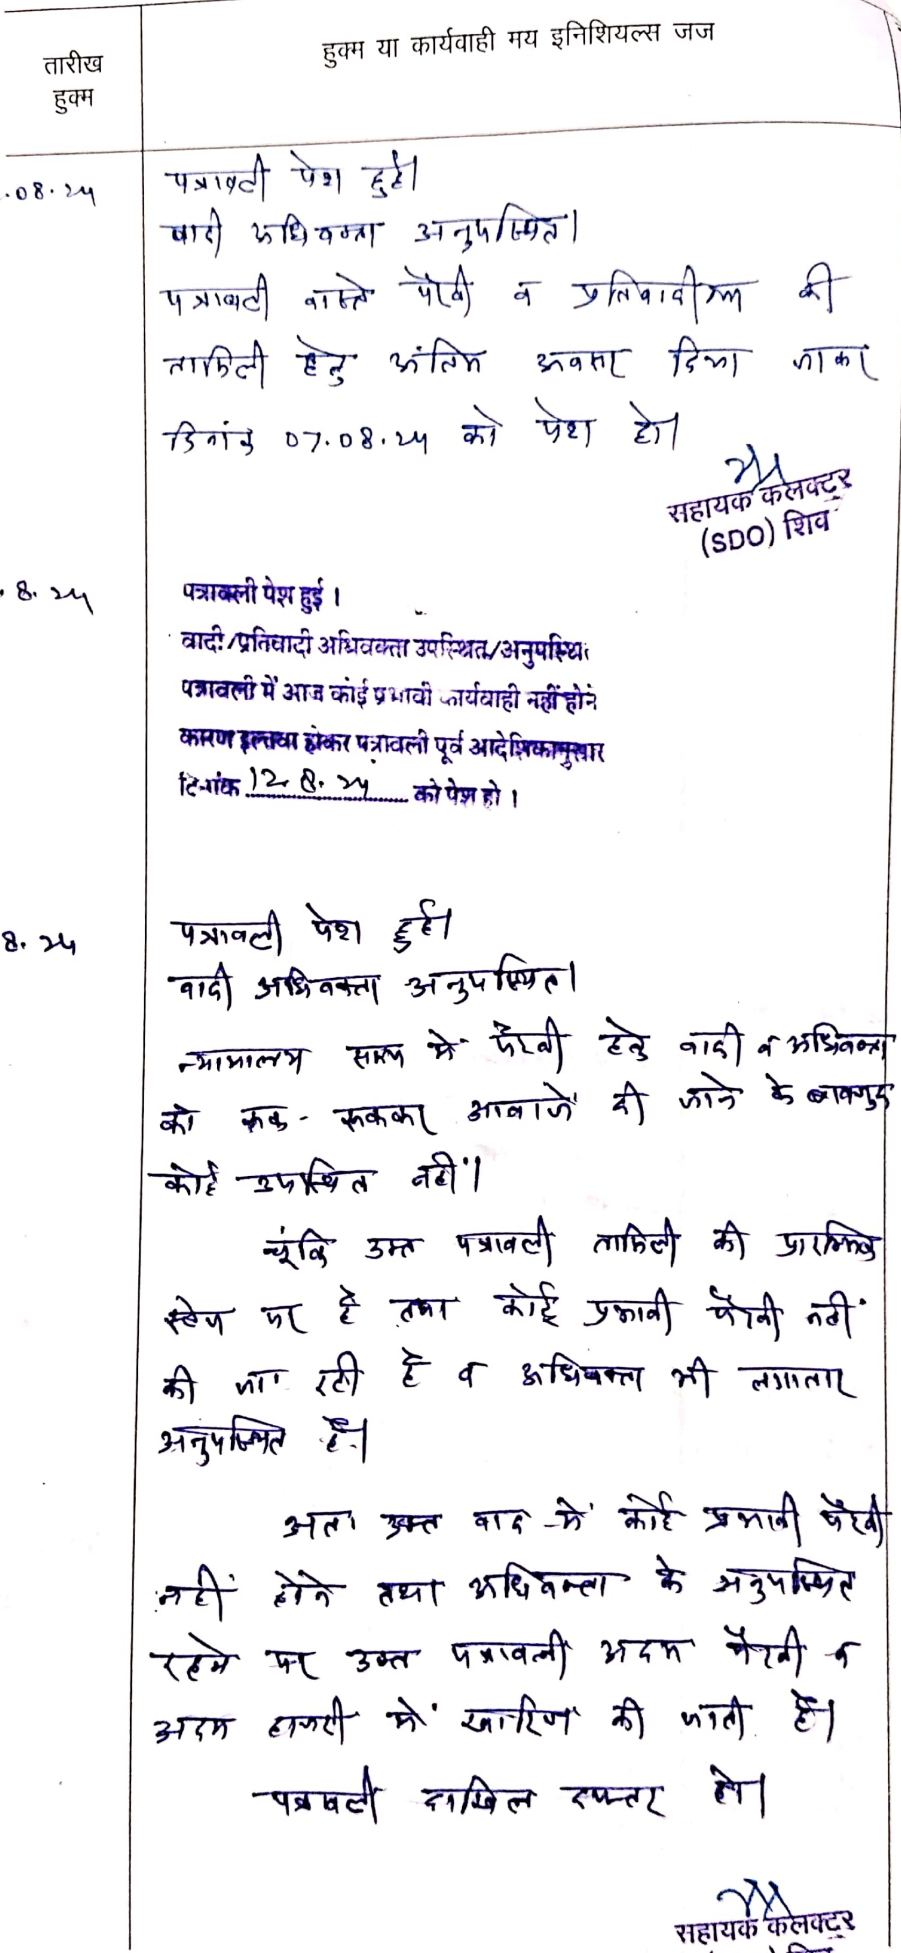 हुक्म या कार्यवाही मय इनिशियल्स जज
तारीख
हुक्म
.08.24
पत्रावली पेश हुई।
वादी अधिवक्ता अनुपस्थित।
पत्रावली वास्ते पैरवी व प्रतिवादीगण की
तामिली हेतु अंतिम अवसर दिया जाकर
दिनांक 07.08.24 को पेश हो।
सहायक कलक्टर
(SDO) शिव
.8.24
पत्रावली पेश हुई ।
वादी/प्रतिवादी अधिवक्ता उपस्थित/अनुपस्थि
पत्रावली में आज कोई प्रभावी कार्यवाही नहीं होने
कारण होकर पत्रावली पूर्व आदेशिकानुसार
दिनांक 12.8.24 को पेश हो ।
8.24
पत्रावली पेश हुई।
वादी अधिवक्ता अनुपस्थित।
न्यायालय समय में पैरवी हेतु वादी व अधिवक्ता
को रूक-रूककर आवाजें दी जाने के बावजुद
कोई उपस्थित नहीं।
चूंकि उक्त पत्रावली तामिली की प्रारम्भिक
स्टेज पर है तथा कोई प्रभावी पैरवी नहीं
की जा रही है व अधिवक्ता भी लगातार
अनुपस्थित है।
अतः उक्त वाद में कोई प्रभावी पैरवी
नहीं होने तथा अधिवक्ता के अनुपस्थित
रहने पर उक्त पत्रावली अदम पैरवी व
अदम हाजरी में खारिज की जाती है।
पत्रावली दाखिल दफ्तर हो।
सहायक कलक्टर